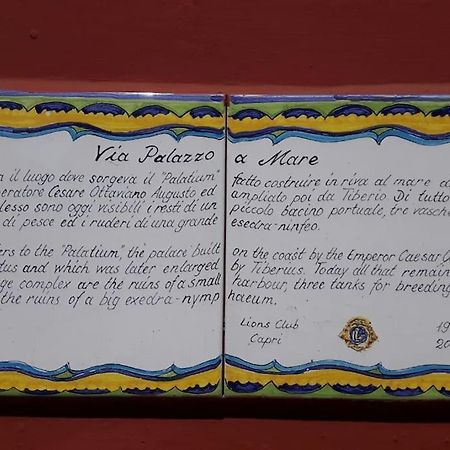 Via Palazzo a Mare
il luogo dove sorgeva il "Palatium" fatto costruire in riva al mare d
eratore Cesare Ottaviano Augusto ed ampliato poi da Tiberio. Di tutto
lesso sono oggi visibili i resti di un piccolo bacino portuale, tre vasche
di pesce ed i ruderi di una grande esedra-ninfeo.
ers to the "Palatium", the palace built on the coast by the Emperor Caesar O
tus and which was later enlarged by Tiberius. Today all that remain
ge complex are the ruins of a small harbour, three tanks for breeding
the ruins of a big exedra-nymp haeum.
Lions Club 19
Capri 20